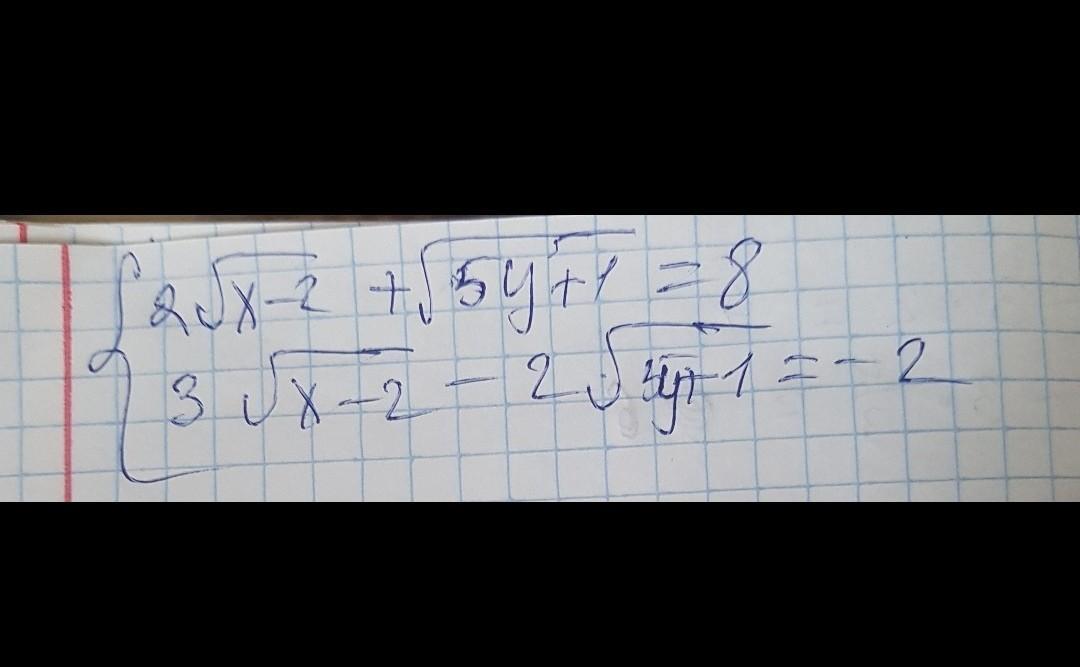 2√(x-2) + √(5y+1) = 8
3√(x-2) - 2√(5y+1) = -2